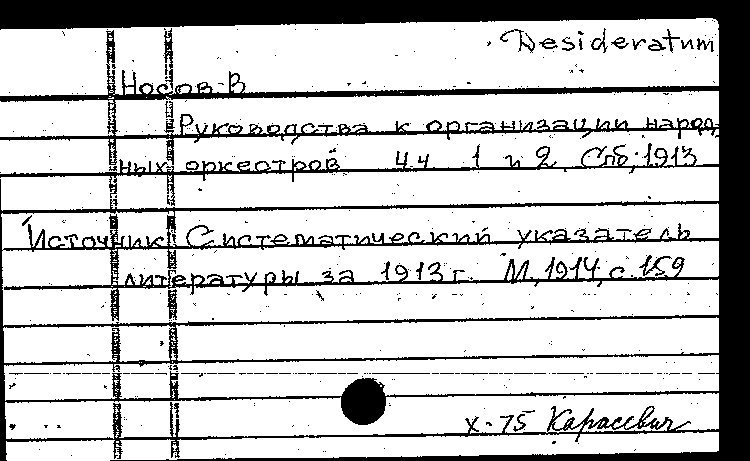 Desideratum
Носов В
Руководства к организации народ
ных оркестров 4.ч 1 и 2 Спб, 1913
Источник Систематический указатель
литературы за 1913 г. М, 1914, с. 159
X-75 Карасевич